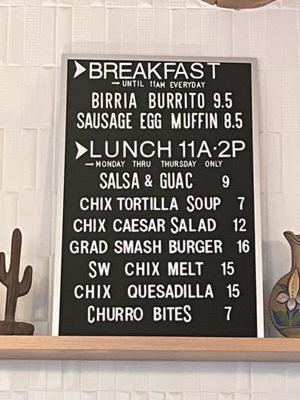 ➤BREAKFAST
→UNTIL 11AM EVERYDAY
BIRRIA BURRITO 9.5
SAUSAGE EGG MUFFIN 8.5
➤LUNCH 11A·2P
→MONDAY THRU THURSDAY ONLY
SALSA & GUAC 9
CHIX TORTILLA SOUP 7
CHIX CAESAR SALAD 12
GRAD SMASH BURGER 16
SW CHIX MELT 15
CHIX QUESADILLA 15
CHURRO BITES 7